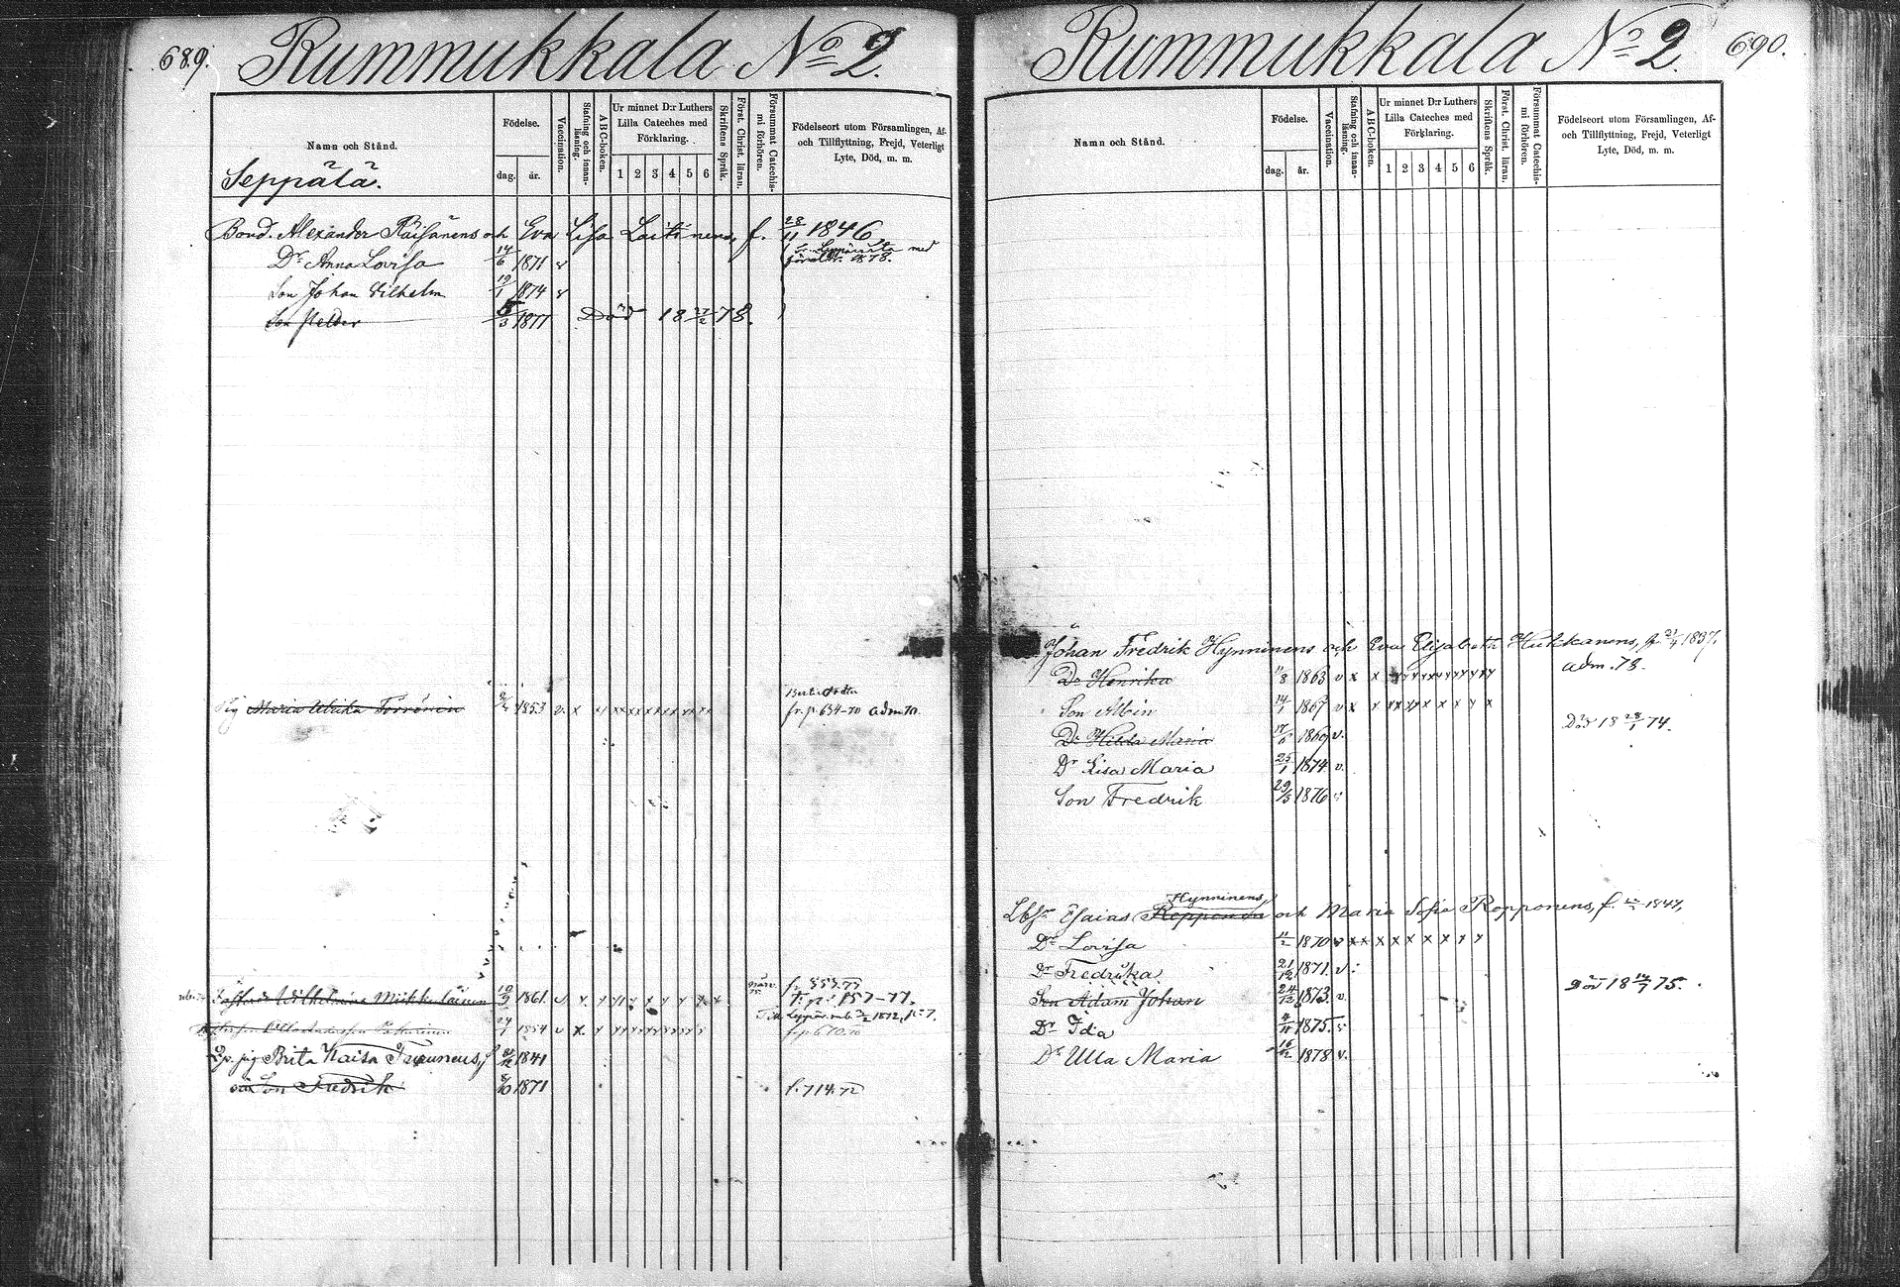 689.
Rummukkala No 2.
Namn och Stånd.
Födelse.
dag.
år.
Vaccination.
Stafning och innan-
läsning.
ABC-boken.
Ur minnet D:r Luthers
Lilla Cateches med
Förklaring.
1 2 3 4 5 6
Skriftens Språk.
Först. Christ. läran.
Försummat Catechis-
mi förhören.
Födelseort utom Församlingen, Af-
och Tillflyttning, Frejd, Veterligt
Lyte, Död, m. m.
Seppälä.
Bond. Alexander Räisänens och Eva Lisa Laitinens, f. 28/11 1846
Dr Anna Lovisa 14/6 1871 v med
Son Johan Wilhelm 19/1 1874 v 1878.
Son Petter 5/3 1877 Död 18 27/2 78.
Maria Ulrika Torrönen 1853 v. x fr. p. 634-70 adm 70.
Wilhelmina Miikkulainen 19/9 1861. v. f. 553.77
t. p. 157-77.
1854 v x f. p. 670.70
Brita Kaisa 1841
Son Fredrik 1871 f. 714.72
690.
Rummukkala No 2.
Namn och Stånd.
Födelse.
dag.
år.
Vaccination.
Stafning och innan-
läsning.
ABC-boken.
Ur minnet D:r Luthers
Lilla Cateches med
Förklaring.
1 2 3 4 5 6
Skriftens Språk.
Först. Christ. läran.
Försummat Catechis-
mi förhören.
Födelseort utom Församlingen, Af-
och Tillflyttning, Frejd, Veterligt
Lyte, Död, m. m.
Johan Fredrik Hynninens och Eva Elisabeth Hukkanens, f. 21/4 1837.
Dr Henrika 11/8 1863 v x x adm. 78.
Son Albin 14/1 1867 v x
Dr Hilda Maria 17/6 1869 v. Död 18 28/1 74.
Dr Lisa Maria 25/1 1874 v.
Son Fredrik 29/3 1876 v
Hynninens
Esaias Ropponens och Maria Sofia Ropponens, f. 1847,
Dr Lovisa 11/2 1870 v x x x x x x x x x
Dr Fredrika 21/12 1871. v.
Son Adam Johan 24/12 1873. v. Död 18 14/7 75.
Dr Ida 4/11 1875. v
Dr Ulla Maria 16/12 1878 v.